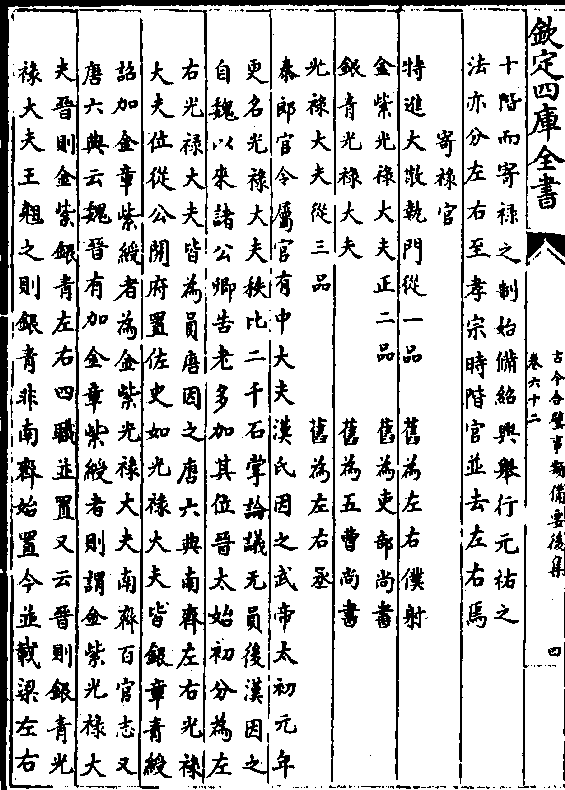 欽定四庫全書
古今合璧事類備要後集
卷六十二
四
十階而寄禄之制始備紹興舉行元祐之
法亦分左右至孝宗時階官並去左右焉
寄禄官
特進大敇執門從一品 舊為左右僕射
金紫光禄大夫正二品 舊為吏部尚書
銀青光禄大夫 舊為五曹尚書
光禄大夫從三品 舊為左右丞
秦郎官令屬官有中大夫漢氏因之武帝太初元年
更名光禄大夫秩比二千石掌論議无員後漢因之
自魏以來諸公卿告老多加其位晉太始初分為左
右光禄大夫皆為員唐因之唐六典南齊左右光禄
大夫位從公開府置佐史如光禄大夫皆銀章青綬
詔加金章紫綬者為金紫光禄大夫南齊百官志又
唐六典云魏晉有加金章紫綬者則謂金紫光禄大
夫晉則金紫銀青左右四職並置又云晉則銀青光
禄大夫王翹之則銀青非南齊始置今並載梁左右